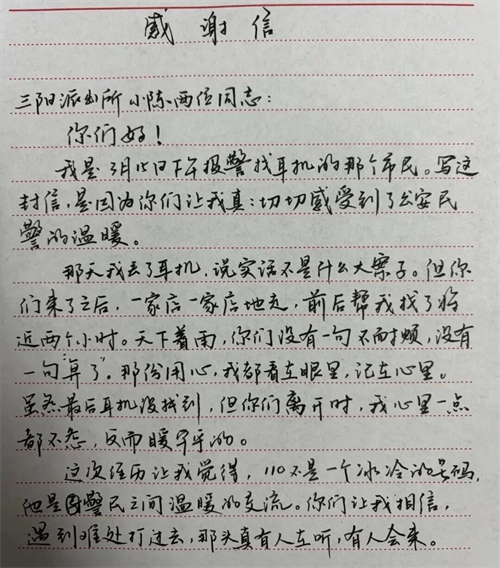 感谢信
三阳派出所小陈两位同志：
你们好！
我是3月15日下午报警找耳机的那个市民。写这
封信，是因为你们让我真真切切感受到了公安民
警的温暖。
那天我丢了耳机，说实话不是什么大案子。但你
们来了之后，一家店一家店地走，前后帮我找了将
近两个小时。天下着雨，你们没有一句不耐烦，没有
一句"算了"。那份用心，我都看在眼里，记在心里。
虽然最后耳机没找到，但你们离开时，我心里一点
都不怨，反而暖乎乎的。
这次经历让我觉得，110不是一个冰冷的号码，
他是警民之间温暖的交流。你们让我相信，
遇到难处打过去，那头真有人在听，有人会来。